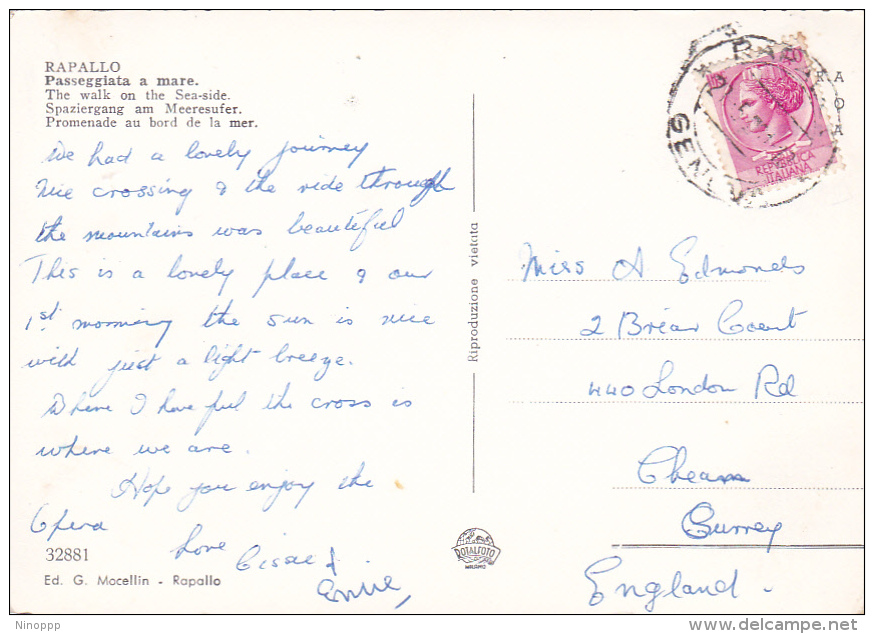 RAPALLO
Passeggiata a mare.
The walk on the Sea-side.
Spaziergang am Meeresufer.
Promenade au bord de la mer.
We had a lovely journey
nice crossing & the ride through
the mountains was beautiful
This is a lovely place & our
1st morning the sun is nice
with just a light breeze.
Where I have put the cross is
where we are.
Hope you enjoy the
Opera
Love
&
Ernie,
32881
Ed. G. Mocellin - Rapallo
Riproduzione vietata
ROTALFOTO
MILANO
REPUBBLICA
ITALIANA
Miss A Edmonds
2 Briar Court
440 London Rd
Cheam
Surrey
England.
Ninoppp
delcampe.net